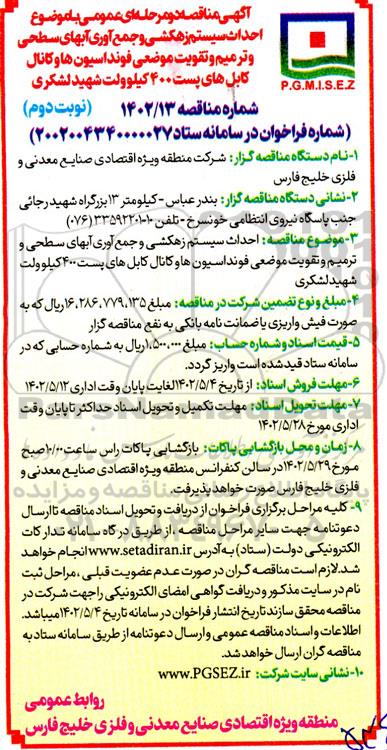 آگهی مناقصه دو مرحله‌ای عمومی با موضوع
احداث سیستم زهکشی و جمع آوری آبهای سطحی
و ترمیم و تقویت موضعی فونداسیون ها و کانال
کابل های پست ۴۰۰ کیلوولت شهید لشکری
P.G.M.I.S.E.Z
شماره مناقصه ۱۴۰۲/۱۳ (نوبت دوم)
(شماره فراخوان در سامانه ستاد ۲۰۰۲۰۰۴۳۴۰۰۰۰۰۲۷)
۱- نام دستگاه مناقصه گزار: شرکت منطقه ویژه اقتصادی صنایع معدنی و
فلزی خلیج فارس
۲- نشانی دستگاه مناقصه گزار: بندر عباس - کیلومتر ۱۳ بزرگراه شهید رجائی
جنب پاسگاه نیروی انتظامی خونسرخ - تلفن ۱۰-۳۳۵۹۲۲۰۱ (۰۷۶)
۳- موضوع مناقصه: احداث سیستم زهکشی و جمع آوری آبهای سطحی و
ترمیم و تقویت موضعی فونداسیون ها و کانال کابل های پست ۴۰۰ کیلوولت
شهید لشکری
۴- مبلغ و نوع تضمین شرکت در مناقصه: مبلغ ۱۶,۲۸۶,۷۷۹,۱۳۵ ریال که به
صورت فیش واریزی یا ضمانت نامه بانکی به نفع مناقصه گزار
۵- قیمت اسناد و شماره حساب: مبلغ ۱,۵۰۰,۰۰۰ ریال به شماره حسابی که در
سامانه ستاد قید شده است واریز گردد.
۶- مهلت فروش اسناد: از تاریخ ۱۴۰۲/۵/۴ لغایت پایان وقت اداری ۱۴۰۲/۵/۱۲
۷- مهلت تحویل اسناد: مهلت تکمیل و تحویل اسناد حداکثر تا پایان وقت
اداری مورخ ۱۴۰۲/۵/۲۸
۸- زمان و محل بازگشایی پاکات: بازگشایی پاکات راس ساعت ۱۰/۰۰ صبح
مورخ ۱۴۰۲/۵/۲۹ در سالن کنفرانس منطقه ویژه اقتصادی صنایع معدنی و
فلزی خلیج فارس صورت خواهد پذیرفت.
۹- کلیه مراحل برگزاری فراخوان از دریافت و تحویل اسناد مناقصه تا ارسال
دعوتنامه جهت سایر مراحل مناقصه، از طریق درگاه سامانه تدارکات
الکترونیکی دولت (ستاد) به آدرس www.setadiran.ir انجام خواهد
شد. لازم است مناقصه گران در صورت عدم عضویت قبلی، مراحل ثبت
نام در سایت مذکور و دریافت گواهی امضای الکترونیکی را جهت شرکت در
مناقصه محقق سازند تاریخ انتشار فراخوان در سامانه تاریخ ۱۴۰۲/۵/۴ میباشد.
اطلاعات و اسناد مناقصه عمومی و ارسال دعوتنامه از طریق سامانه ستاد به
مناقصه گران ارسال خواهد شد.
۱۰- نشانی سایت شرکت: www.PGSEZ.ir
روابط عمومی
منطقه ویژه اقتصادی صنایع معدنی و فلزی خلیج فارس